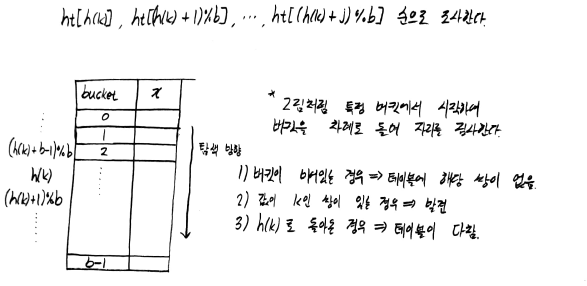 ht[h(k)], ht[(h(k)+1)%b], ..., ht[(h(k)+j)%b] 순으로 조사한다.
bucket x
0
1
2
b-1
(h(k)+b-1)%b
h(k)
(h(k)+1)%b
탐색 방향
* 그림처럼 특정 버킷에서 시작하여
버킷을 차례로 돌며 자리를 검사한다.
1) 버킷이 비어있는 경우 ⇒ 테이블에 해당 쌍이 없음.
2) 값이 k인 쌍이 있는 경우 ⇒ 발견
3) h(k)로 돌아온 경우 ⇒ 테이블이 다참.